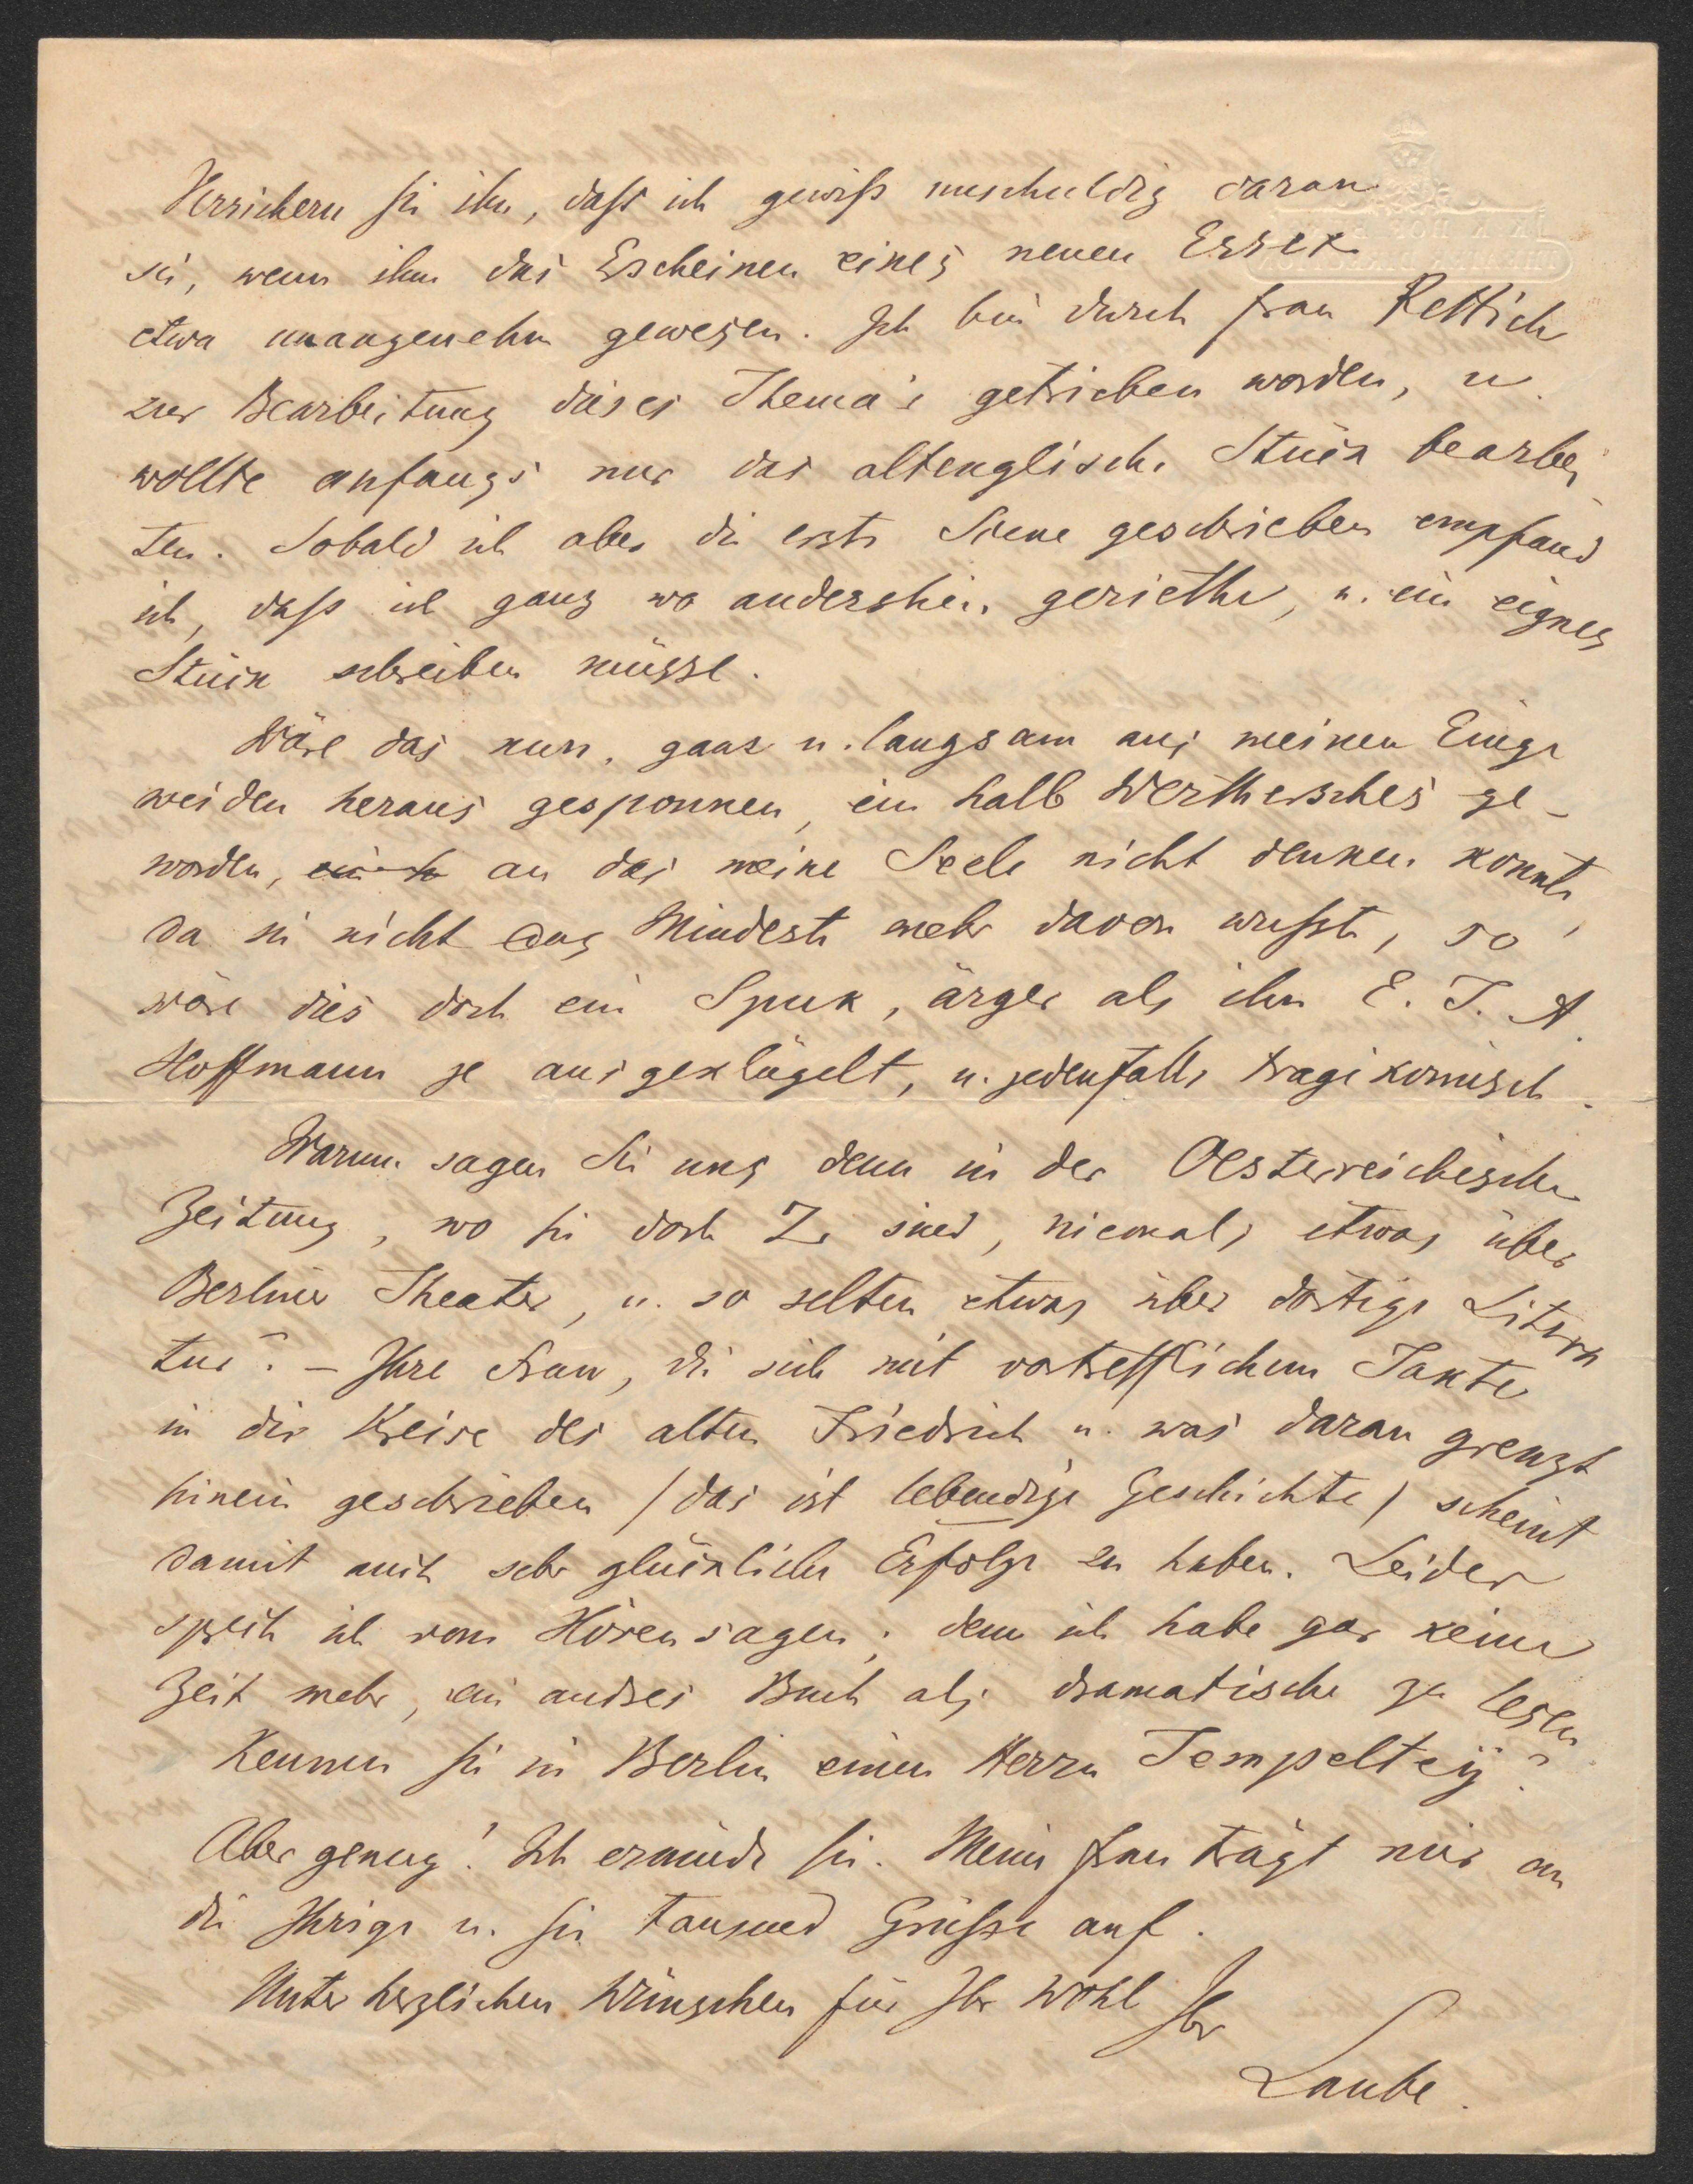 Versichern Sie ihn, daß ich gewiß unschuldig daran
sei, wenn ihm das Escheinen eines neuen Essex
etwa unangenehm gewesen. Ich bin durch Frau Rettich
zur Bearbeitung dieses Thema's getrieben worden, u.
wollte anfangs nur das altenglische Stück bearbei
ten. Sobald ich aber die erste Scene geschrieben empfand
ich, daß ich ganz wo andershin geriethe, u. ein eignes
Stück schreiben müsse.
Wäre das nun, ganz u. langsam aus meinen Einge
weiden heraus gesponnen, ein halb Werthersches ge-
worden, an das meine Seele nicht denken konnte,
da sie nicht das Mindeste mehr davon wußte, so
wäre dies doch ein Spuk, ärger als ihn E. T. A.
Hoffmann je ausgeklügelt, u. jedenfalls tragikomisch.
Warum sagen Sie uns denn in der Oesterreichischen
Zeitung, wo Sie doch Z sind, niemals etwas über
Berliner Theater, u. so selten etwas über dortige Litera
tur? – Ihre Frau, die sich mit vortrefflichem Takte
in die Kreise des alten Friedrich u. was daran grenzt
hinein geschrieben /das ist lebendige Geschichte/ scheint
damit auch sehr glückliche Erfolge zu haben. Leider
spreche ich vom Hörensagen; denn ich habe gar keine
Zeit mehr, ein andres Buch als dramatische zu lesen.
Kennen Sie in Berlin einen Herrn Tempeltey?
Aber genug! Ich ermüde Sie. Meine Frau trägt mir an
die Ihrige u. Sie tausend Grüße auf.
Unter herzlichen Wünschen für Ihr Wohl Ihr
Laube.